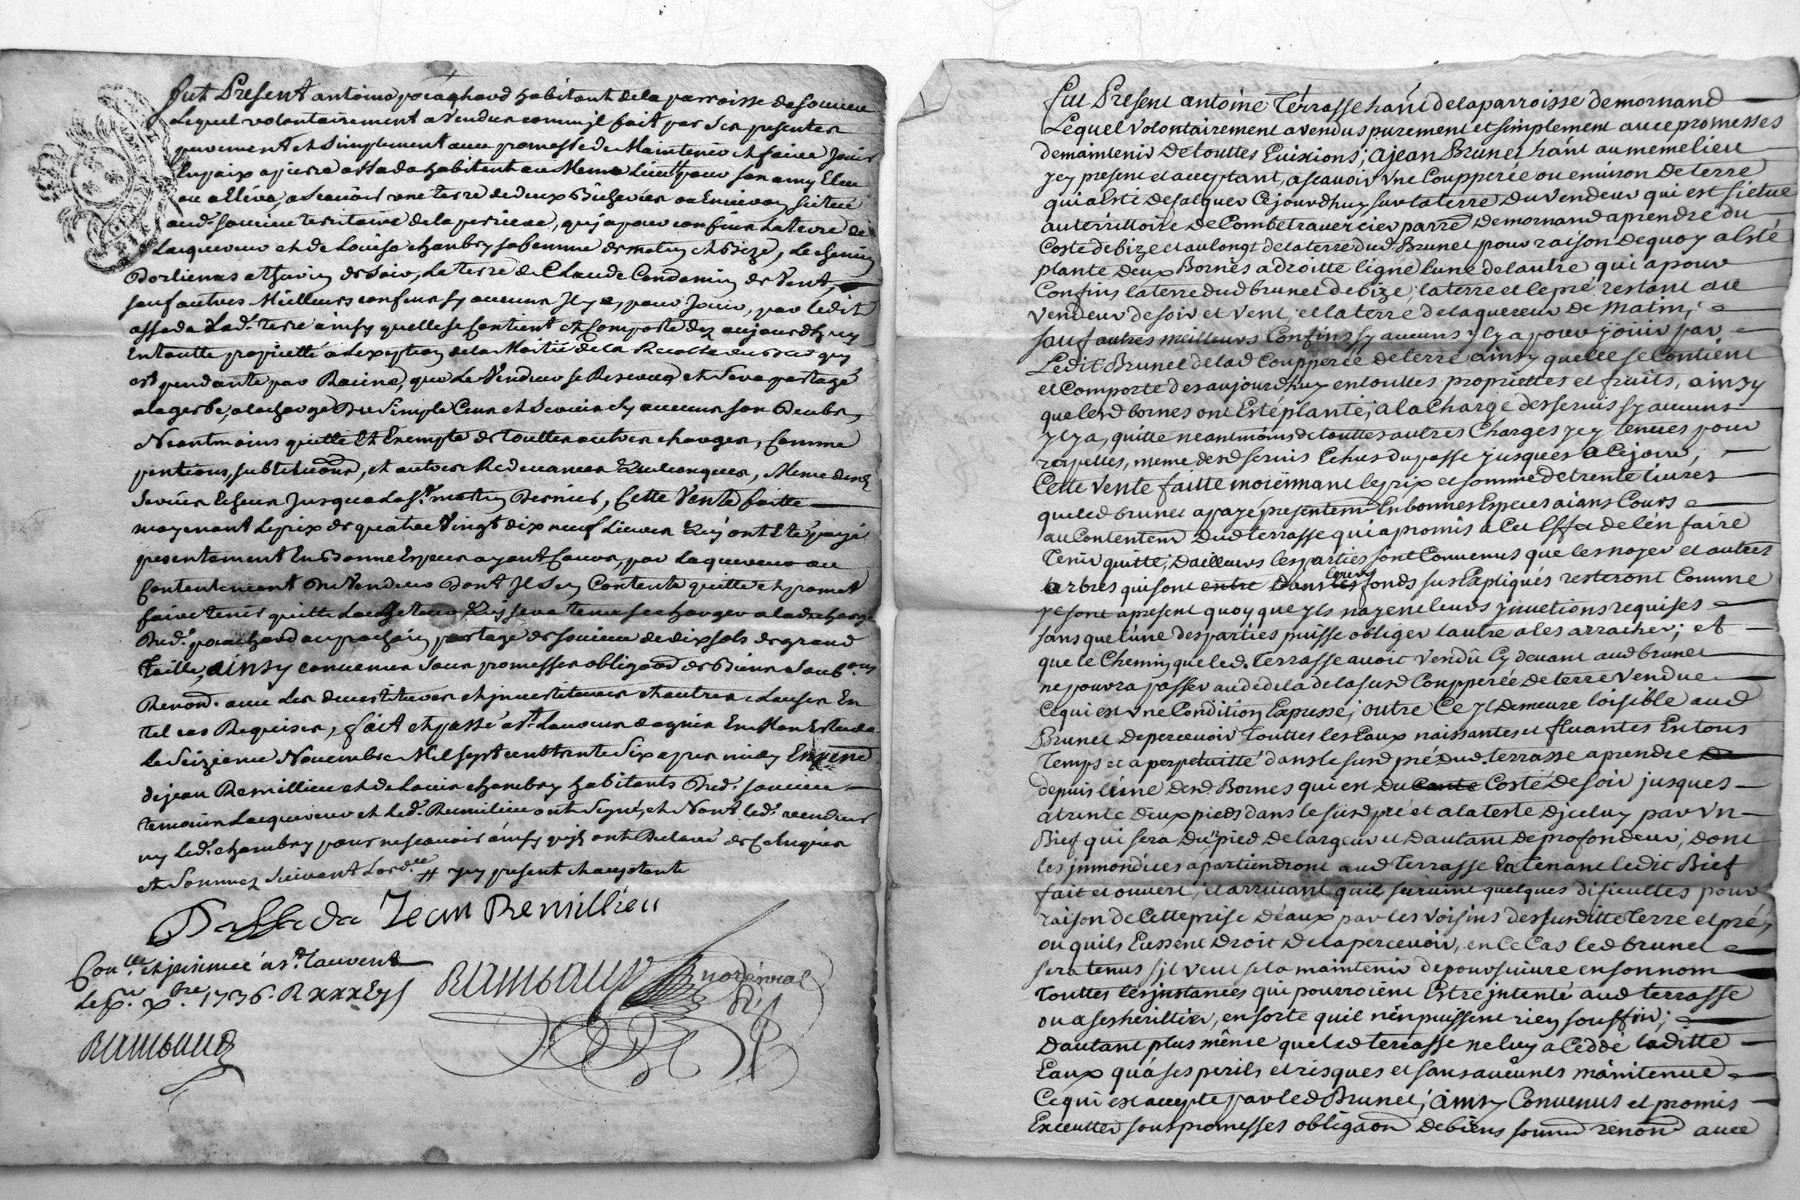 fut Present antoine pocachard habitant de la parroisse de soucieu
Lequel volontairement a vendu comme il fait par ses presentes
purement et simplement avec promesse de Maintenir et faire Jouir
En paix a pierre assada habitant au Meme Lieu pour son amy Eleu
ou a Elire, a scavoir une terre de deux Bicherées ou Environ scituée
aud. soucieu territoire de la qui a pour confins La terre de
Lacquereur et de Louise chambry sa femme de matin et bize, Le chemin
Dorlienas a de soir, La terre de Claude Condamin de Vent,
sauf autres Meilleurs confins sy aucuns Il y a, pour Jouir, par ledit
assada Lad. terre ainsy quelle se contient et Comporte dez aujourdhuy
En toutte proprietté a Lexeption de la Moitié de la Recolte
est pendante par Racine, que Le Vendeur se Reserve et sera partagé
a la gerbe, a la charge Du Simple Cens et Servis sy aucuns son Deubs,
Neantmoins quitte Et Exempte de touttes autres charges, Comme
pentions, substitutions, et autres Redevances quelconques, Meme desd.
Servis Echeus Jusqua La St. martin Dernier, Cette Vente faitte
moyenant Le prix de quatre Vingt dix neuf Livres quy ont Eté payé
presentement En Bonne Especes ayant Cours, par Lacquereur au
Contentement Du Vendeur Dont Il sen Contente quitte et promet
faire tenir quitte Lacheteur, quy sera tenu se charger a la decharge
Dud. pocachard au prochain partage de soucieu de dix sols de grand
taille, ainsy convenu sous promesses obligaon de Biens
Renond. avec Les devestitures et investitures et autres clauses En
tel cas Requises, fait et passé a St. Laurent dagnin En Mon Estude
Le Seizieme Novembre Mil sept cent trente Six apres midy En presence
de jean Remillieu et de Louis chambry habitants Dud. soucieu
temoins Lacquereur et Led. Remillieu ont signé, et Non Led. vendeur
ny Led. chambry pour ne scavoir ainsy quils ont Declaré de Ce Enquis
et Sommez Suivant Lord.ce // icy present et aceptante
Passada Jean Remillieu
Con.llé et insinué a St. Laurent
Le 1736.
Rambaud
Rambaud No.re royal
Fut Present antoine Terrasse hant de la parroisse de mornand
Lequel volontairement a vendus purement et simplement avec promesses
de maintenir de touttes Evixions; a jean Brunet hant au meme lieu
jcy present et acceptant, a scavoir une Coupperée ou environ de terre
qui a Esté desalquer Cejourdhuy sur la terre du vendeur qui est situé
au territtoire de Combetraversier parre de mornand a prendre du
Costé de bize et au longt de la terre dud Brunet pour raison de quoy a Esté
planté deux Bornes a droitte ligne lune de lautre, qui a pour
Confins la terre dud brunet de bize; la terre et le pré restant au
vendeur de soir et vent, et la terre de laquereur de matin;
sauf autres meilleurs Confins sy aucuns y ly a pour y jouir par
Ledit Brunet de lad Coupperée de terre ainsy quelle se Contient
et Comporte des aujourdhuy en touttes proprietties et fruits, ainsy
que lesd bornes ont Esté planté; a la Charge des servis sy aucuns
y ly a, quitte neantmoins de touttes autres Charges jcy tenues pour
reppellées, meme desd servis Echus du passé jusques a Cejour;
Cette vente faitte moiennant le prix et somme de trente livres
que led brunet a payé presentemt En bonnes Especes aians Cours
au Contentemt dud terrasse qui a promis a Cet Effet de l'en faire
tenir quitte; Dailleurs les parties sont Convenus que les noyer et autres
arbres qui sont entre Dans les leurs fonds sus Expliqués resteront Comme
y sont apresent quoy que y ls n'ayent leurs jnuetions requises
sans que l'une des parties puisse obliger lautre a les arracher; et
que le Chemin que led. terrasse avoit vendu Cy devant aud brunet
ne pourra passer au dedela de la susd Coupperée de terre vendue
Ce qui est une Condition Expresse; outre Ce y l demeure loisible aud
Brunet de percevoir touttes les Eaux naissantes et fluantes En tous
temps et a perpetuitté dans le susd pré dud. terrasse a prendre
depuis l'une desd Bornes qui est du Coste Costé de soir jusques
a trente deux pieds dans le susd pré et a la teste djceluy par un
Bief qui sera dun pied de largeur et dautant de profondeur, dont
les jnmondices apartiendront aud terrasse En tenant ledit Bief
fait et ouvert, et arrivant quil survint quelques dificultés pour
raison de Cette prise deaux par les voisins des susditte terre et pré,
ou quils Eussent droit de la percevoir, en Ce Cas led brunet
sera tenus sil veut se la maintenir de poursuivre en son nom
touttes les jnstances qui pourroient Estre jntenté aud terrasse
ou a ses herittier, en sorte quil n'en puissent rien souffrir;
Dautant plus même que led terrasse ne luy a Cédde laditte
Eaux qu'a ses perils et risques et sans aucunes maintenue
Ce qui est accepté par led Brunet; ainsy Convenus et promis
Executter sous promesses obligaon de biens soumd renond avec